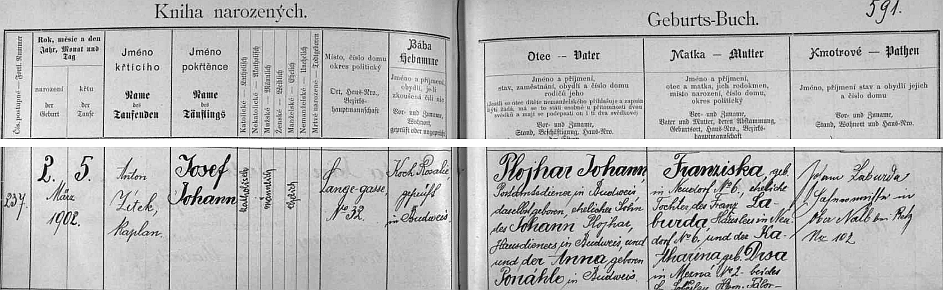 Kniha narozených.
Geburts-Buch.
591.
Čís. postupné — Fortl. Nummer
Rok, měsíc a den
Jahr, Monat und
Tag
narození
der
Geburt
křtu
der
Taufe
Jméno
křtícího
Name
des
Taufenden
Jméno
pokřtěnce
Name
des
Täuflings
Katolické — Katholisch
Nekatolické — Akatholisch
Mužské — Männlich
Ženské — Weiblich
Manželské — Ehelich
Nemanželské — Unehelich
Mrtvě narozené — Todtgeboren
Místo, číslo domu
okres politický
Ort, Haus-Nro.,
Bezirks-
hauptmannschaft
Bába
Hebamme
Jméno a příjmení,
její obydlí, je-li
zkoušená čili nic
Vor- und Zuname,
Wohnort,
geprüft oder ungeprüft
Otec — Vater
Jméno a příjmení,
stav, zaměstnání, obydlí a číslo domu
rodičů jeho
Vor- und Zuname,
Stand, Beschäftigung, Haus-Nro.
Matka — Mutter
Jméno a příjmení,
otec a matka, jich rodokmen,
místo narození, číslo domu,
okres politický
Vor- und Zuname,
Vater und Mutter, deren Abstammung,
Geburtsort, Haus-Nro., Bezirks-
hauptmannschaft
Kmotrové — Pathen
Jméno a příjmení, stav a obydlí jejich
a číslo domu
Vor- und Zuname,
Stand, Wohnort und Haus-Nro.
237.
2. 5.
März
1902.
Anton
Zítek,
Kaplan.
Josef
Johann
katholisch
männlich
ehelich
Lange-gasse
No 32.
Koch Rosalie,
geprüft
in Budweis.
Plojhar Johann
Postamtsdiener, in Budweis
daselbst geboren, ehelicher Sohn
des Johann Plojhar,
Hausdieners in Budweis, und
und der Anna geboren
Ponáhle in Budweis.
Franziska, geb.
in Neudorf No 6, eheliche
Tochter des Franz Za-
burda, Häusler in Neu-
dorf No 6, und der Ka-
tharina geb. Drsa
in No 2 - beides
Zaburda
in
Ober Nalb bei Retz
No 102